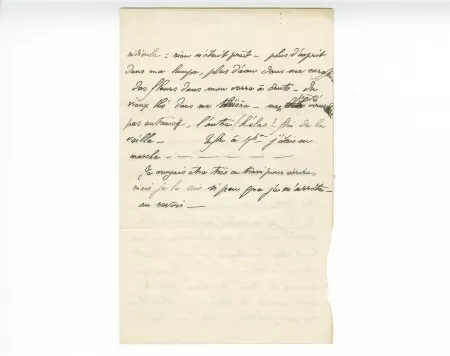 ridicule : rien n'était prêt - plus d'esprit
dans ma lampe, plus d'eau dans ma carafe
des fleurs dans mon verre à dents - du
vieux thé dans ma théière -
pas entamé, l'autre (hélas!) fini de la
veille -
marche -
Je croyais être très en train pour écrire,
mais je le suis si peu que je m'arrête -
au revoir -